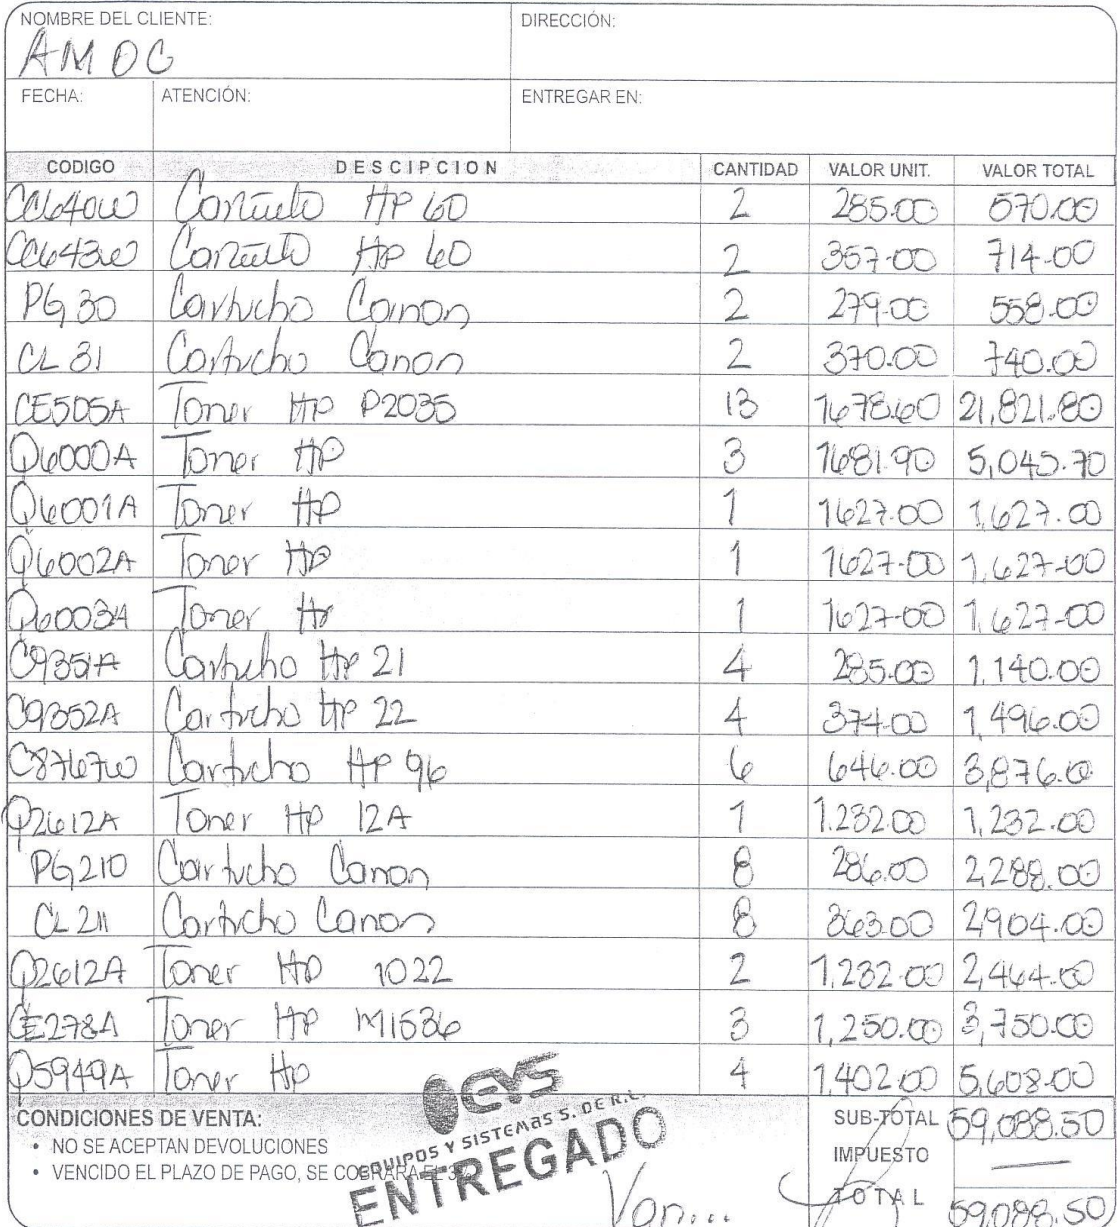 NOMBRE DEL CLIENTE: DIRECCIÓN:
AMDC
FECHA: ATENCIÓN: ENTREGAR EN:
CODIGO DESCIPCION CANTIDAD VALOR UNIT. VALOR TOTAL
CC640W HP 60 2 285.00 570.00
CC643W HP 60 2 357.00 714.00
PG 30 Cartucho Canon 2 279.00 558.00
CL 31 Cartucho Canon 2 370.00 740.00
CE505A Toner HP P2035 13 1678.60 21,821.80
Q6000A Toner HP 3 1681.90 5,045.70
Q6001A Toner HP 1 1627.00 1,627.00
Q6002A Toner HP 1 1627.00 1,627.00
Q6003A Toner Hp 1 1627.00 1,627.00
C9351A Cartucho HP 21 4 285.00 1,140.00
C9352A Cartucho HP 22 4 374.00 1,496.00
C8767W Cartucho HP 96 6 646.00 3,876.00
Q2612A Toner HP 12A 1 1.232.00 1,232.00
PG 210 Cartucho Canon 8 286.00 2,288.00
CL 211 Cartucho Canon 8 363.00 2904.00
Q2612A Toner HP 1022 2 1,232.00 2,464.00
CE278A Toner HP M1536 3 1,250.00 3,750.00
Q5949A Toner Hp 4 1,402.00 5,608.00
CONDICIONES DE VENTA: SUB-TOTAL 59,088.50
• NO SE ACEPTAN DEVOLUCIONES IMPUESTO —
• VENCIDO EL PLAZO DE PAGO, SE COBRARA EL 3% TOTAL 59,088.50
EYS
EQUIPOS Y SISTEMAS S. DE R.L.
ENTREGADO